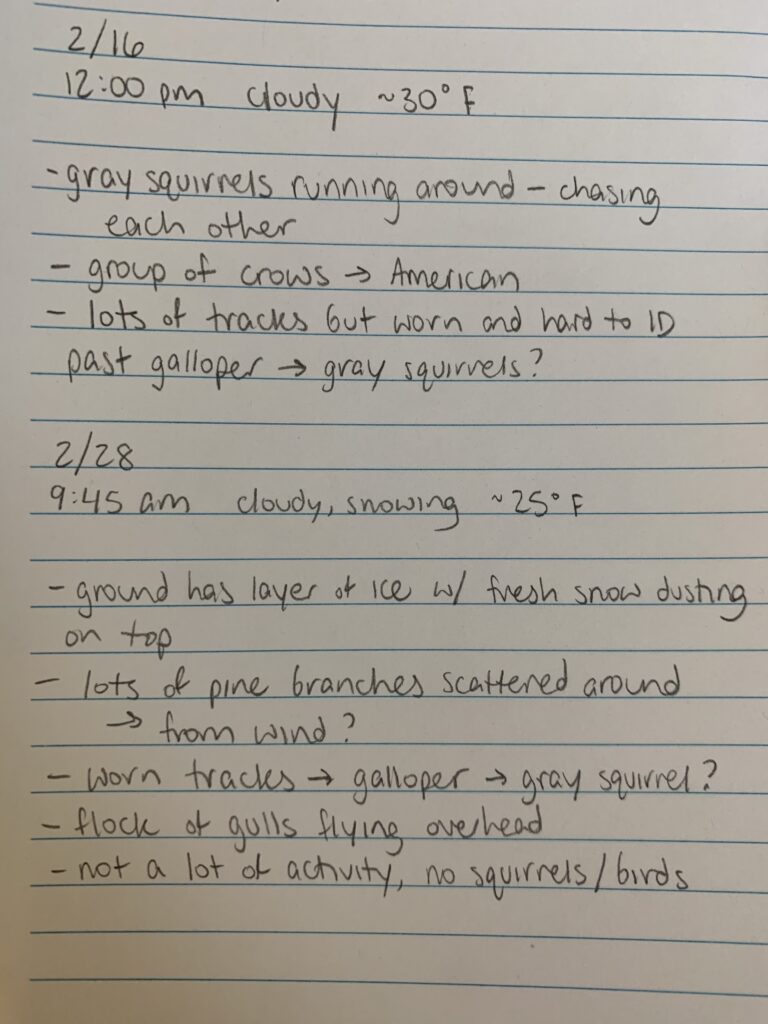 2/16
12:00 pm cloudy ~30° F
- gray squirrels running around - chasing
each other
- group of crows → American
- lots of tracks but worn and hard to ID
past galloper → gray squirrels?
2/28
9:45 am cloudy, snowing ~25° F
- ground has layer of ice w/ fresh snow dusting
on top
- lots of pine branches scattered around
→ from wind?
- worn tracks → galloper → gray squirrel?
- flock of gulls flying overhead
- not a lot of activity, no squirrels/birds